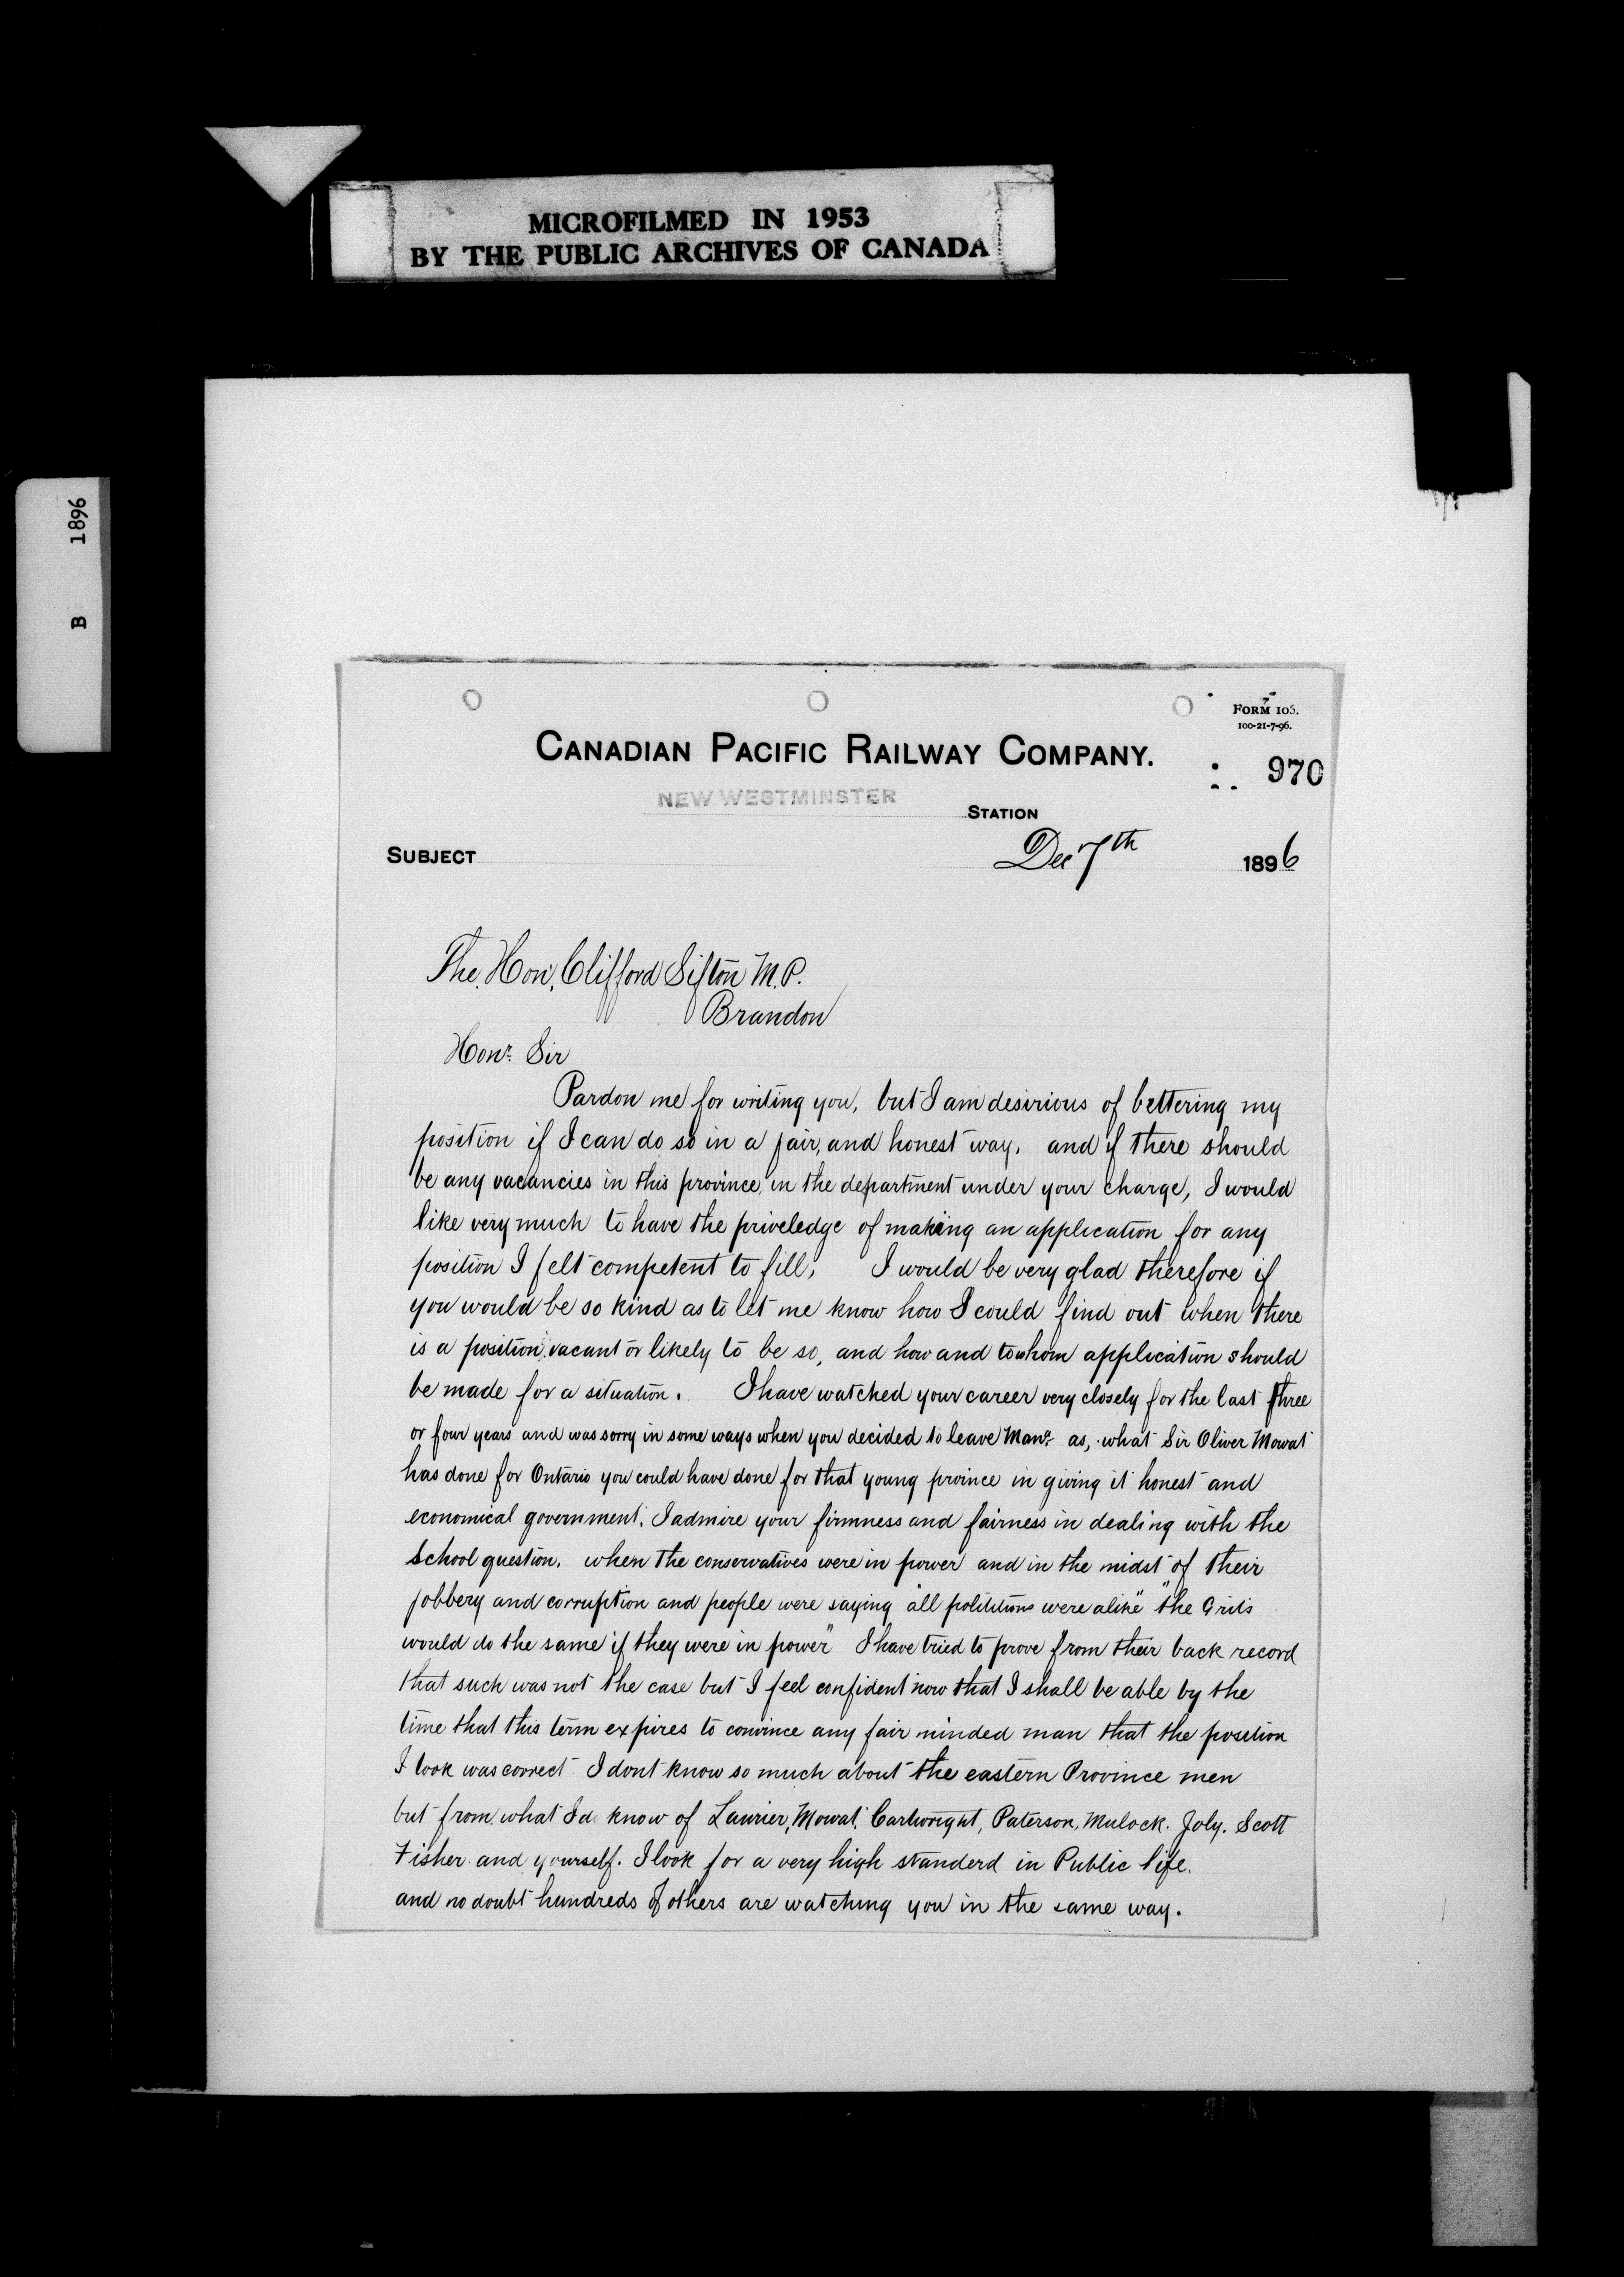 MICROFILMED IN 1953
BY THE PUBLIC ARCHIVES OF CANADA
B 1896
FORM 106.
100-21-7-96.
CANADIAN PACIFIC RAILWAY COMPANY.
970
NEW WESTMINSTER STATION
SUBJECT Dec 7th 1896
The. Hon. Clifford Sifton M.P.
Brandon
Honr. Sir
Pardon me for writing you, but I am desirious of bettering my
position if I can do so in a fair, and honest way, and if there should
be any vacancies in this province, in the department under your charge, I would
like very much to have the priveledge of making an application for any
position I felt competent to fill, I would be very glad therefore if
you would be so kind as to let me know how I could find out when there
is a position vacant or likely to be so, and how and to whom application should
be made for a situation. I have watched your career very closely for the last three
or four years and was sorry in some ways when you decided to leave Man. as, what Sir Oliver Mowat
has done for Ontario you could have done for that young province in giving it honest and
economical government. I admire your firmness and fairness in dealing with the
School question. when the conservatives were in power and in the midst of their
jobbery and corruption and people were saying "all polititions were alike" "the Grits
would do the same if they were in power" I have tried to prove from their back record
that such was not the case but I feel confident now that I shall be able by the
time that this term expires to convince any fair minded man that the position
I took was correct I dont know so much about the eastern Province men
but from what I do know of Laurier, Mowat, Cartwright, Paterson, Mulock. Joly. Scott
Fisher and yourself. I look for a very high standerd in Public life.
and no doubt hundreds of others are watching you in the same way.